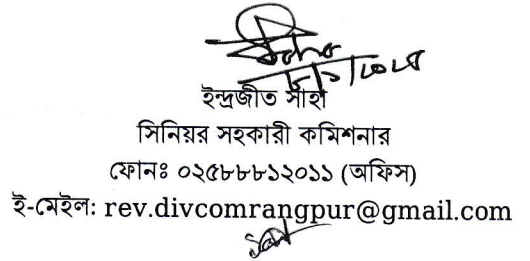 ইন্দ্রজীত সাহা
সিনিয়র সহকারী কমিশনার
ফোনঃ ০২৫৮৮৮১২০১১ (অফিস)
ই-মেইল: rev.divcomrangpur@gmail.com